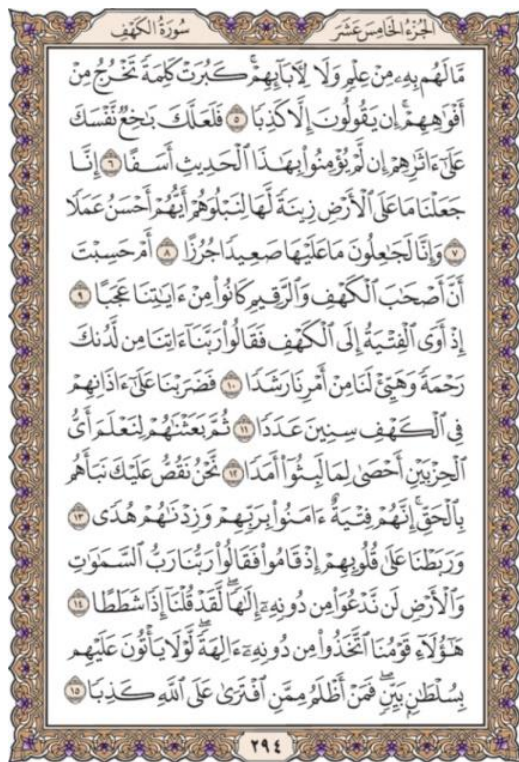 الجُزْءُ الخَامِسَ عَشَرَ سُورَةُ الكَهْفِ
مَّا لَهُم بِهِۦ مِنْ عِلْمٖ وَلَا لِأٓبَآئِهِمۡۚ كَبُرَتۡ كَلِمَةٗ تَخۡرُجُ مِنۡ
أَفۡوَٰهِهِمۡۚ إِن يَقُولُونَ إِلَّا كَذِبٗا ٥ فَلَعَلَّكَ بَٰخِعٞ نَّفۡسَكَ
عَلَىٰٓ ءَاثَٰرِهِمۡ إِن لَّمۡ يُؤۡمِنُواْ بِهَٰذَا ٱلۡحَدِيثِ أَسَفًا ٦ إِنَّا
جَعَلۡنَا مَا عَلَى ٱلۡأَرۡضِ زِينَةٗ لَّهَا لِنَبۡلُوَهُمۡ أَيُّهُمۡ أَحۡسَنُ عَمَلٗا
٧ وَإِنَّا لَجَٰعِلُونَ مَا عَلَيۡهَا صَعِيدٗا جُرُزًا ٨ أَمۡ حَسِبۡتَ
أَنَّ أَصۡحَٰبَ ٱلۡكَهۡفِ وَٱلرَّقِيمِ كَانُواْ مِنۡ ءَايَٰتِنَا عَجَبًا ٩
إِذۡ أَوَى ٱلۡفِتۡيَةُ إِلَى ٱلۡكَهۡفِ فَقَالُواْ رَبَّنَآ ءَاتِنَا مِن لَّدُنكَ
رَحۡمَةٗ وَهَيِّئۡ لَنَا مِنۡ أَمۡرِنَا رَشَدٗا ١٠ فَضَرَبۡنَا عَلَىٰٓ ءَاذَانِهِمۡ
فِي ٱلۡكَهۡفِ سِنِينَ عَدَدٗا ١١ ثُمَّ بَعَثۡنَٰهُمۡ لِنَعۡلَمَ أَيُّ
ٱلۡحِزۡبَيۡنِ أَحۡصَىٰ لِمَا لَبِثُوٓاْ أَمَدٗا ١٢ نَّحۡنُ نَقُصُّ عَلَيۡكَ نَبَأَهُم
بِٱلۡحَقِّۚ إِنَّهُمۡ فِتۡيَةٌ ءَامَنُواْ بِرَبِّهِمۡ وَزِدۡنَٰهُمۡ هُدٗى ١٣
وَرَبَطۡنَا عَلَىٰ قُلُوبِهِمۡ إِذۡ قَامُواْ فَقَالُواْ رَبُّنَا رَبُّ ٱلسَّمَٰوَٰتِ
وَٱلۡأَرۡضِ لَن نَّدۡعُوَاْ مِن دُونِهِۦٓ إِلَٰهٗاۖ لَّقَدۡ قُلۡنَآ إِذٗا شَطَطًا ١٤
هَٰٓؤُلَآءِ قَوۡمُنَا ٱتَّخَذُواْ مِن دُونِهِۦٓ ءَالِهَةٗۖ لَّوۡلَا يَأۡتُونَ عَلَيۡهِم
بِسُلۡطَٰنِۭ بَيِّنٖۖ فَمَنۡ أَظۡلَمُ مِمَّنِ ٱفۡتَرَىٰ عَلَى ٱللَّهِ كَذِبٗا ١٥
٢٩٤